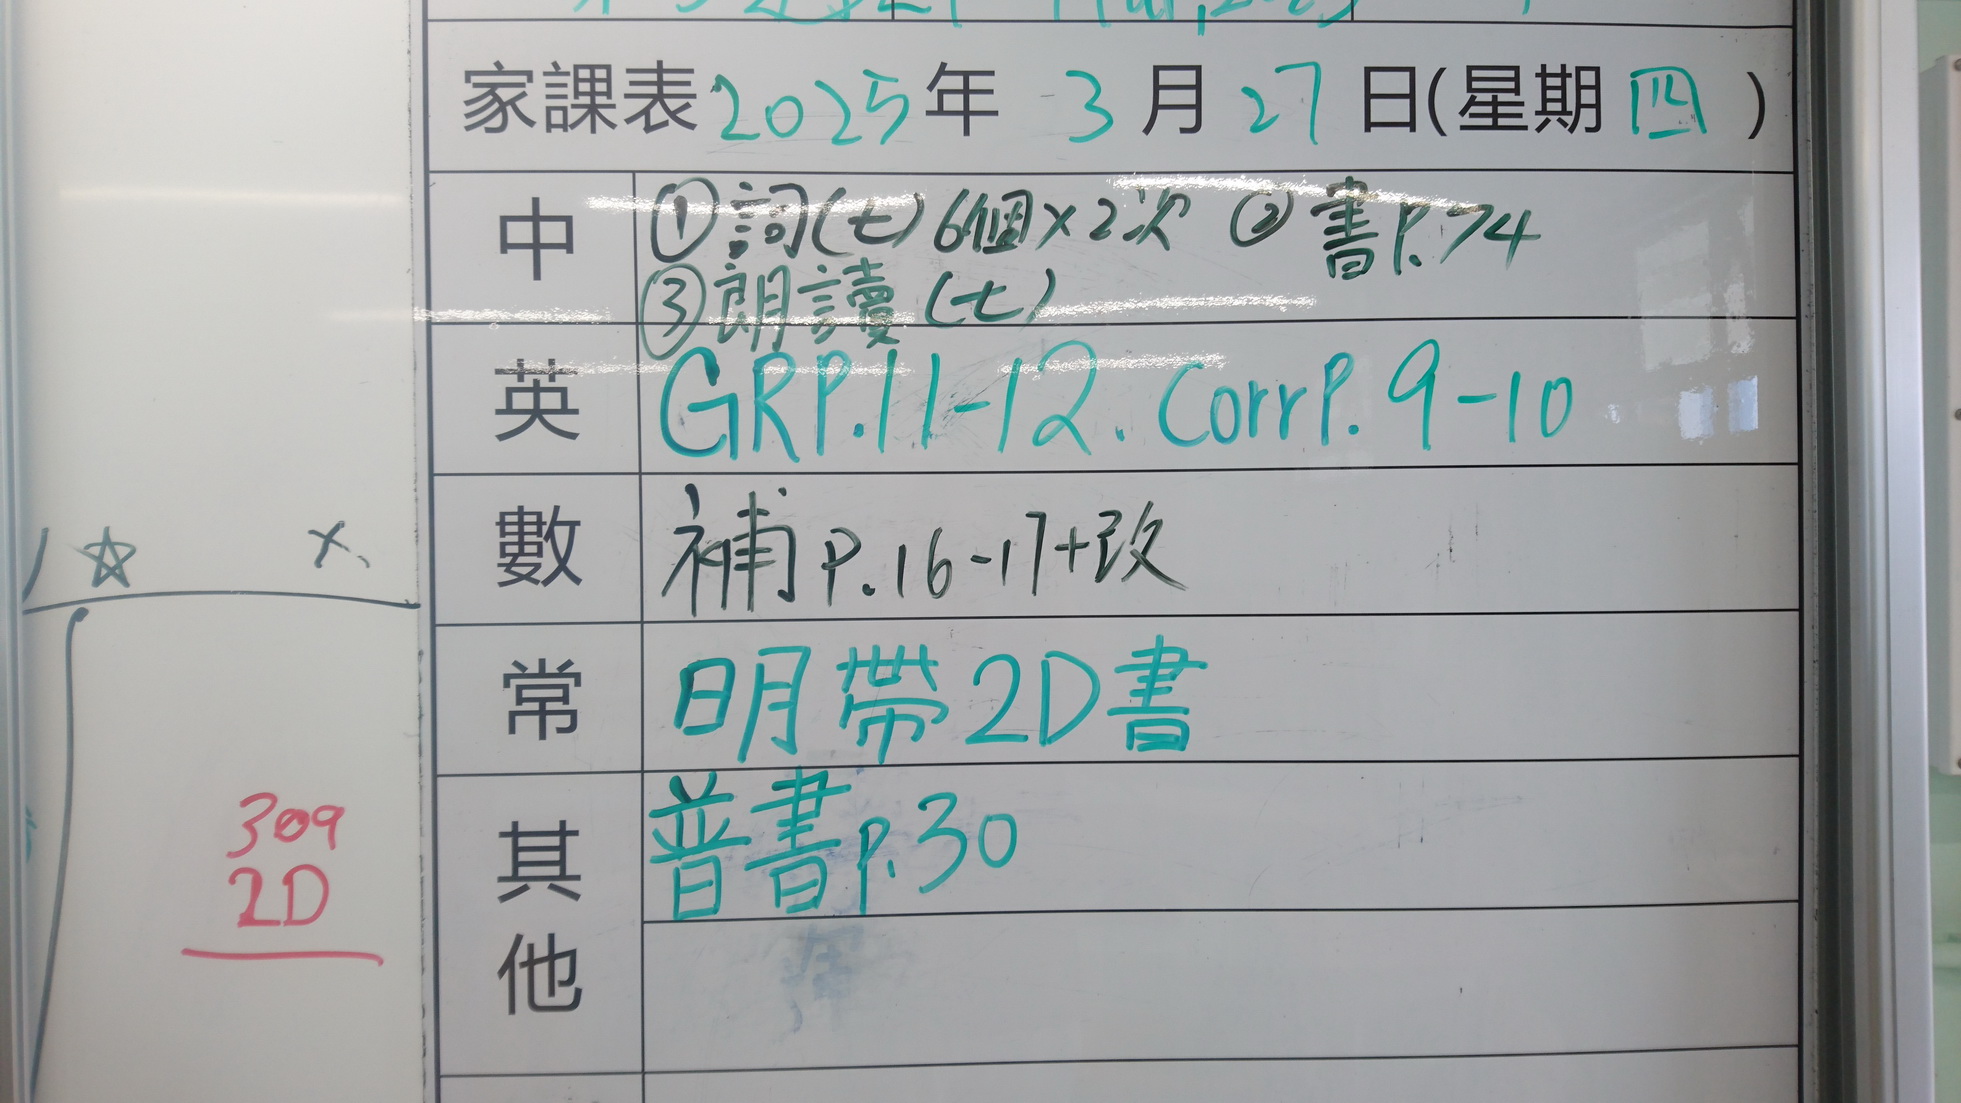 家課表2025年 3月27日(星期四)
中 ①詞(七)6個×2次 ②書P.74
③朗讀(七)
英 GRP.11-12. Corr P. 9-10
數 補P.16-17+改
常 明帶2D書
其他 普書p.30
☆ ×
309
2D